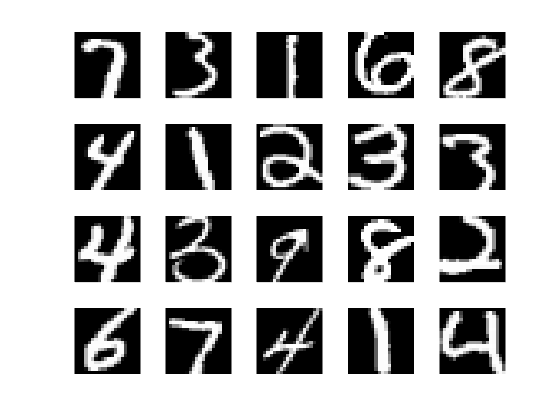 7 3 1 6 8
4 1 2 3 3
4 3 9 8 2
6 7 4 1 4